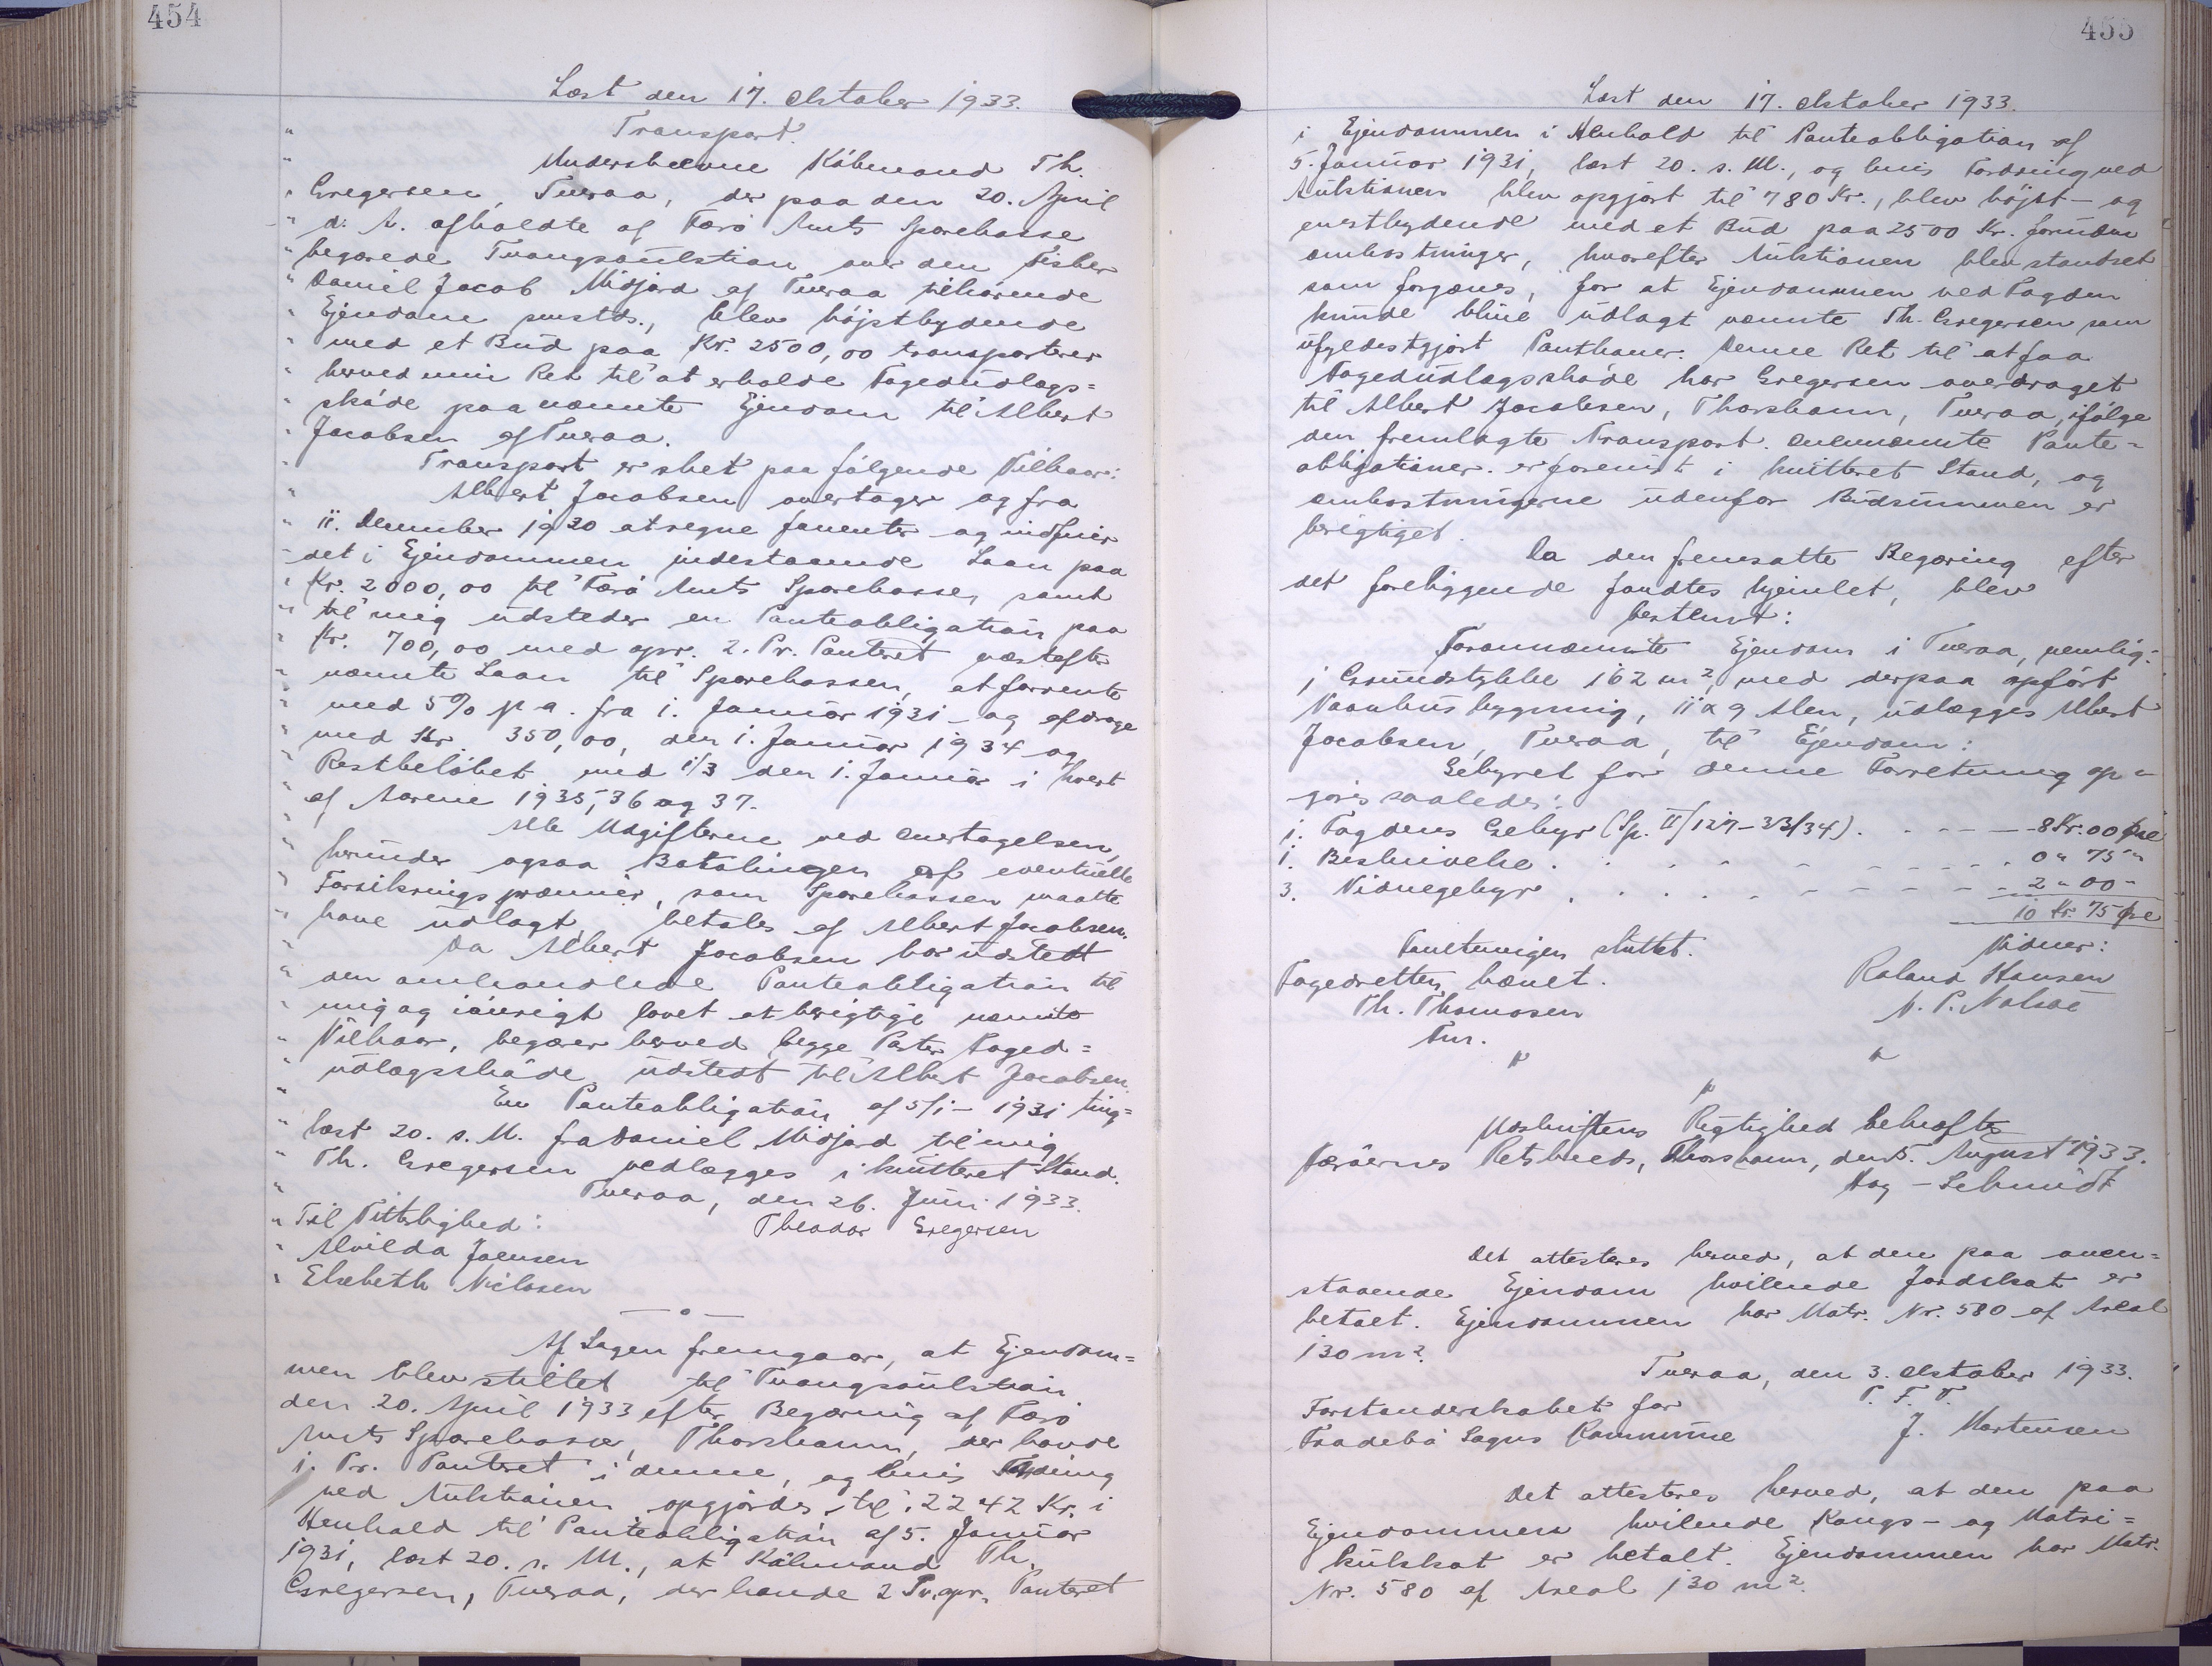 454
Læst den 17. Oktober 1933.
" Transport.
" Undertegnede Købmand Th.
" Gregersen, Tveraa, der paa den 20. April
" d. A. afholdte af Færø Amts Sparekasse
" begærede Tvangsauktion over den Fisker
" Daniel Jacob Midjord af Tveraa tilhørende
" Ejendom smstds., blev højstbydende
" med et Bud paa Kr. 2500,00 transporterer
" herved min Ret til at erholde Fogedudlægs=
" skøde paa nævnte Ejendom til Albert
" Jacobsen af Tveraa.
" Transport er sket paa følgende Vilkaar:
" Albert Jacobsen overtager og fra
" 11. December 1930 at regne forrenter og indfrier
" det i Ejendommen indestaaende Laan paa
" Kr. 2000,00 til Færø Amts Sparekasse, samt
" til mig udsteder en Panteobligation paa
" Kr. 700,00 med opr. 2. Pr. Panteret næstefter
" nævnte Laan til Sparekassen, at forrente
" med 5% p. a. fra 1. Januar 1931 – og afdrage
" med Kr. 350,00, den 1. Januar 1934 og
" Restbeløbet med 1/3 den 1. Januar i hvert
" af Aarene 1935, 36 og 37.
" Alle Udgifterne ved Overtagelsen,
" herunder ogsaa Betalingen af eventuelle
" Forsikringspræmier, som Sparekassen maatte
" have udlagt, betales af Albert Jacobsen.
" Da Albert Jacobsen har udstedt
" den omhandlede Panteobligation til
" mig og iøvrigt lovet at berigtige nævnte
" Vilkaar, begærer herved begge Parter Foged=
" udlægsskøde udstedt til Albert Jacobsen.
" En Panteobligation af 5/1 – 1931 ting=
" læst 20. s. M. fra Daniel Midjord til mig
" Th. Gregersen vedlægges i kvitteret Stand.
" Tveraa, den 26. Juni 1933.
" Til Vitterlighed: Theodor Gregersen
" Alvilda Joensen
" Elsebeth Niclasen
— o —
Af Sagen fremgaar, at Ejendom=
men blev stillet til Tvangsauktion
den 20. April 1933 efter Begæring af Færø
Amts Sparekasse, Thorshavn, der havde
1. Pr. Panteret i denne, og hvis Fordring
ved Auktionen opgjordes til 2242 Kr. i
Henhold til Panteobligation af 5. Januar
1931, læst 20. s. M., at Købmand Th.
Gregersen, Tveraa, der havde 2 Pr. opr. Panteret
455
Læst den 17. Oktober 1933.
i Ejendommen i Henhold til Panteobligation af
5. Januar 1931, læst 20. s. M., og hvis Fordring ved
Auktionen blev opgjort til 780 Kr., blev højst- og
enestbydende med et Bud paa 2500 Kr. foruden
Omkostninger, hvorefter Auktionen blev standset
som forgæves, for at Ejendommen ved Fogden
kunde blive udlagt nævnte Th. Gregersen som
ufyldestgjort Panthaver. Denne Ret til at faa
Fogedudlægsskøde har Gregersen overdraget
til Albert Jacobsen, Thorshavn, Tveraa, ifølge
den fremlagte Transport. Ovennævnte Pante=
obligationer er forevist i kvitteret Stand, og
Omkostningerne udenfor Budsummen er
berigtiget.
Da den fremsatte Begæring efter
det foreliggende fandtes hjemlet, blev
bestemt:
Forannævnte Ejendom i Tveraa, nemlig:
1 Grundstykke 162 m², med derpaa opført
Vaanhusbygning, 11 x 9 Alen, udlægges Albert
Jacobsen, Tveraa, til Ejendom:
Gebyret for denne Forretning op=
gøres saaledes:
1. Fogdens Gebyr (Sp. II/127-33/34). - - - - 8 Kr. 00 Øre
1. Beskrivelse . . . - - - - - 0 " 75 "
3. Vidnegebyr . . . . - - - - - 2 " 00 -
10 Kr 75 Øre
Forretningen sluttet. Vidner:
Fogedretten hævet. Roland Hansen
Th. Thomasen N. P. Nolsøe
Fm.
Udskriftens Rigtighed bekræftes
Færøernes Retskreds, Thorshavn, den 5. August 1933.
Aag – Schmidt
Det attesteres herved, at den paa oven=
staaende Ejendom hvilende Jordskat er
betalt. Ejendommen har Matr. Nr. 580 af Areal
130 m².
Tveraa, den 3. Oktober 1933.
Forstanderskabet for P. F. V.
Frodebø Sogns Kommune J. Mortensen
Det attesteres herved, at den paa
Ejendommen hvilende Kongs- og Matri=
kulskat er betalt. Ejendommen har Matr.
Nr. 580 af Areal 130 m².